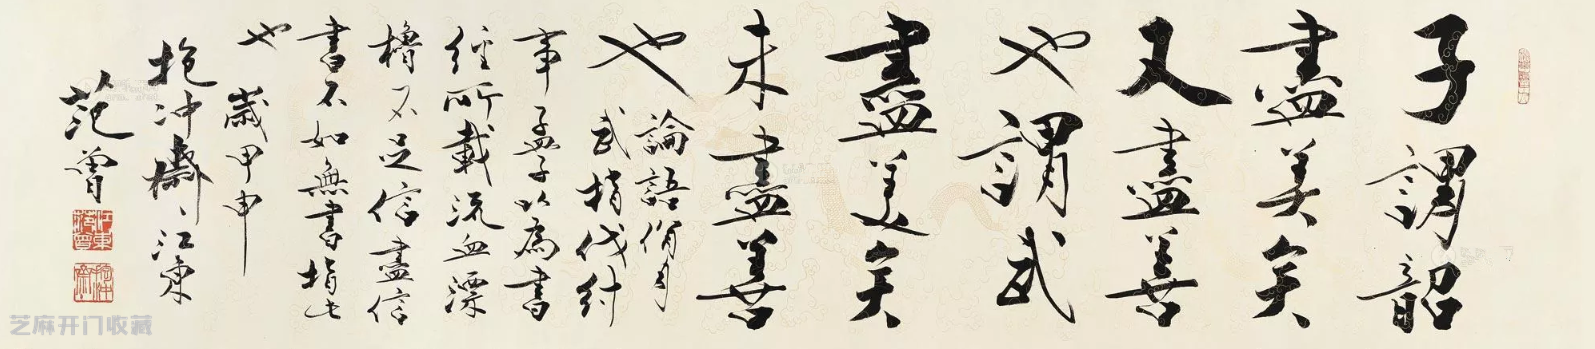 子謂韶
盡美矣
又盡善
也謂武
盡美矣
未盡善
也
論語
武指伐紂
事孟子以為書
經所載流血漂
櫓不足信盡信
書不如無書指此
也 歲甲申
抱沖齋江東
范曾
江東范曾
芝麻开门收藏